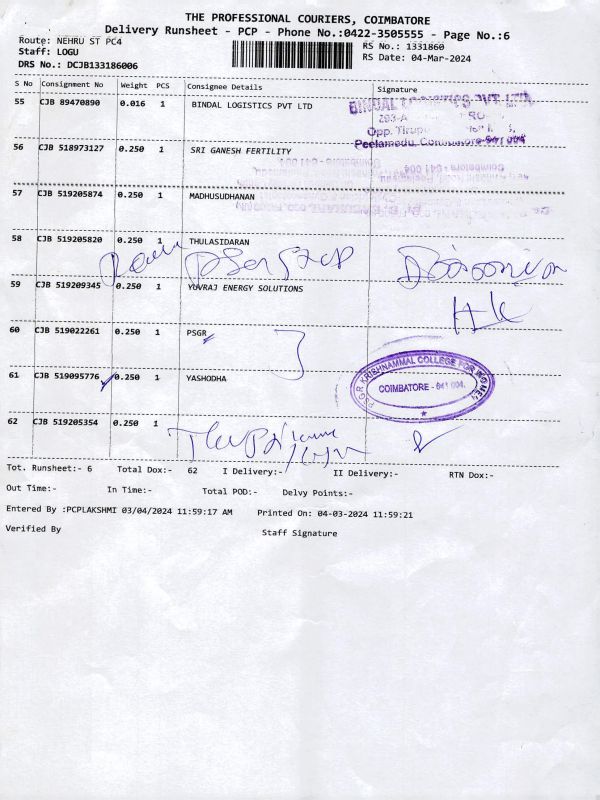 THE PROFESSIONAL COURIERS, COIMBATORE
Delivery Runsheet - PCP - Phone No.:0422-3505555 - Page No.:6
Route: NEHRU ST PC4 RS No.: 1331860
Staff: LOGU RS Date: 04-Mar-2024
DRS No.: DCJB133186006
S No Consignment No Weight PCS Consignee Details Signature
55 CJB 89470890 0.016 1 BINDAL LOGISTICS PVT LTD
BINDAL LOGISTICS PVT. LTD.
Opp.
Peelamedu, Coimbatore-641 004
56 CJB 518973127 0.250 1 SRI GANESH FERTILITY
Coimbatore - 641 004
57 CJB 519205874 0.250 1 MADHUSUDHANAN
58 CJB 519205820 0.250 1 THULASIDARAN
59 CJB 519209345 0.250 1 YUVRAJ ENERGY SOLUTIONS
60 CJB 519022261 0.250 1 PSGR
PSGR KRISHNAMMAL COLLEGE FOR WOMEN
COIMBATORE - 641 004.
61 CJB 519095776 0.250 1 YASHODHA
62 CJB 519205354 0.250 1
Tot. Runsheet:- 6 Total Dox:- 62 I Delivery:- II Delivery:- RTN Dox:-
Out Time:- In Time:- Total POD:- Delvy Points:-
Entered By :PCPLAKSHMI 03/04/2024 11:59:17 AM Printed On: 04-03-2024 11:59:21
Verified By Staff Signature